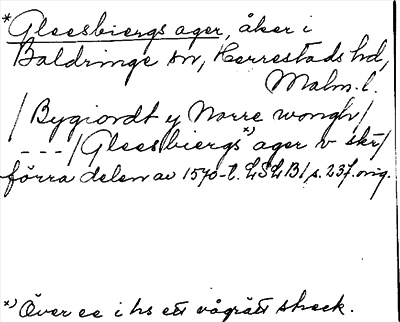 *Gleesbiergs ager, åker i
Baldringe sn, Herrestads hd,
Malm. l.
/Bygiordt y Norre wongh/
---/Gleesbiergs*) ager v skr/
förra delen av 1570-t. LSLB1, s. 237. orig.
*) Över ee i hs ett vågrätt streck.